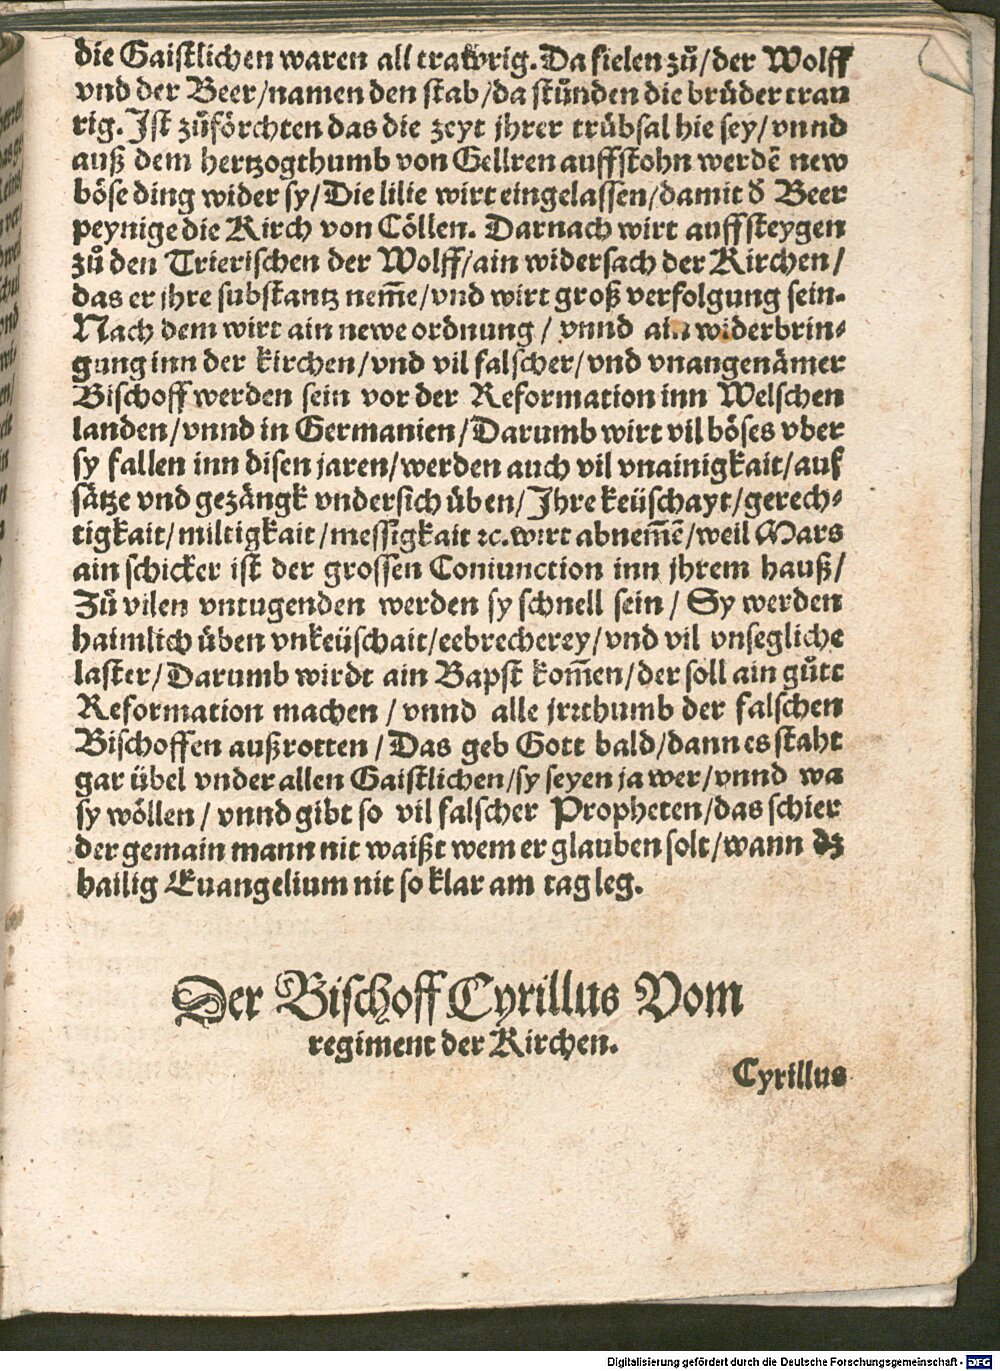 die Gaistlichen waren all trawrig. Da fielen zuͦ/ der Wolff
vnd der Beer/ namen den stab/ da stuͦnden die bruͤder trau
rig. Ist zuͦförchten das die zeyt jhrer truͤbsal hie sey/ vnnd
auß dem hertzogthumb von Gellren auffstohn werdē new
böse ding wider sy/ Die lilie wirt eingelassen/ damit d̕ Beer
peynige die Kirch von Cöllen. Darnach wirt auffsteygen
zuͦ den Trierischen der Wolff/ ain widersach der Kirchen/
das er jhre substantz nem̄e/ vnd wirt groß verfolgung sein.
Nach dem wirt ain newe ordnung/ vnnd ain widerbrin⸗
gung inn der kirchen/ vnd vil falscher/ vnd vnangenämer
Bischoff werden sein vor der Reformation inn Welschen
landen/ vnnd in Germanien/ Darumb wirt vil böses vber
sy fallen inn disen jaren/ werden auch vil vnainigkait/ auf
sätze vnd gezängk vndersich üben/ Ihre keüschayt/ gerech⸗
tigkait/ miltigkait/ messigkait ꝛc. wirt abnem̄ē/ weil Mars
ain schicker ist der grossen Coniunction inn jhrem hauß/
Zuͦ vilen vntugenden werden sy schnell sein/ Sy werden
haimlich üben vnkeüschait/ eebrecherey/ vnd vil vnsegliche
laster/ Darumb wirdt ain Bapst kom̄en/ der soll ain guͦte
Reformation machen/ vnnd alle jrrthumb der falschen
Bischoffen außrotten/ Das geb Gott bald/ dann es staht
gar übel vnder allen Gaistlichen/ sy seyen ja wer/ vnnd wa
sy wöllen/ vnnd gibt so vil falscher Propheten/ das schier
der gemain mann nit waißt wem er glauben solt/ wann dz
hailig Euangelium nit so klar am tag leg.
Der Bischoff Cyrillus Vom
regiment der Kirchen.
Cyrillus
Digitalisierung gefördert durch die Deutsche Forschungsgemeinschaft - DFG